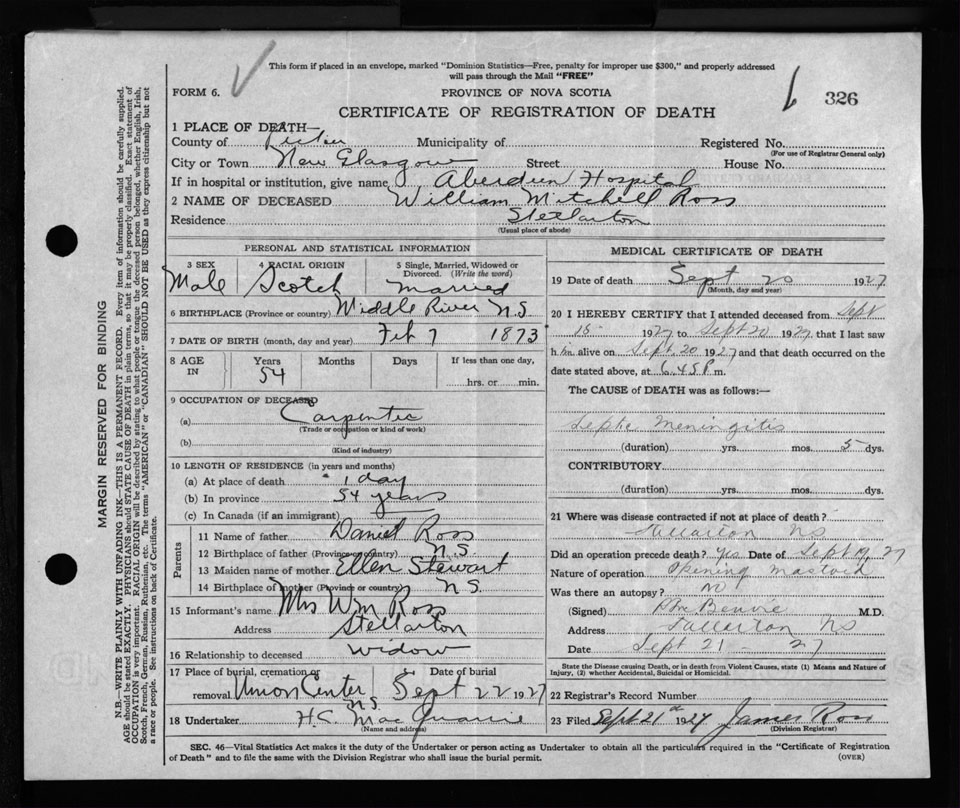 This form if placed in an envelope, marked "Dominion Statistics—Free, penalty for improper use $300," and properly addressed
will pass through the Mail "FREE"
FORM 6.
PROVINCE OF NOVA SCOTIA
326
CERTIFICATE OF REGISTRATION OF DEATH
1 PLACE OF DEATH—
County of Pictou Municipality of Registered No.
(For use of Registrar General only)
City or Town New Glasgow Street House No.
If in hospital or institution, give name Aberdeen Hospital
2 NAME OF DECEASED William Mitchell Ross
Residence Stellarton
(Usual place of abode)
PERSONAL AND STATISTICAL INFORMATION
3 SEX 4 RACIAL ORIGIN 5 Single, Married, Widowed or Divorced. (Write the word)
Male Scotch Married
6 BIRTHPLACE (Province or country) Middle River N.S.
7 DATE OF BIRTH (month, day and year) Feb 7 1873
8 AGE IN Years Months Days If less than one day,
54 hrs. or min.
9 OCCUPATION OF DECEASED
(a) Carpenter
(Trade or occupation or kind of work)
(b)
(Kind of industry)
10 LENGTH OF RESIDENCE (in years and months)
(a) At place of death 1 day
(b) In province 54 years
(c) In Canada (if an immigrant)
Parents
11 Name of father Daniel Ross
12 Birthplace of father (Province or country) N.S.
13 Maiden name of mother Ellen Stewart
14 Birthplace of mother (Province or country) N.S.
15 Informant's name Mrs Wm Ross
Address Stellarton
16 Relationship to deceased widow
17 Place of burial, cremation or removal Union Center N.S. Date of burial Sept 22 1927
18 Undertaker H.C. MacQuarrie
(Name and address)
MEDICAL CERTIFICATE OF DEATH
19 Date of death Sept 20 1927
(Month, day and year)
20 I HEREBY CERTIFY that I attended deceased from Sept
15 1927 to Sept 20 1927, that I last saw
h im alive on Sept 20 1927 and that death occurred on the
date stated above, at 6.45 P m.
The CAUSE of DEATH was as follows:—
Septic Meningitis
(duration) yrs. mos. 5 dys.
CONTRIBUTORY
(duration) yrs. mos. dys.
21 Where was disease contracted if not at place of death?
Stellarton NS
Did an operation precede death? Yes Date of Sept 19 27
Nature of operation Opening mastoid
Was there an autopsy? No
(Signed) Benvie M.D.
Address Stellarton NS
Date Sept 21 - 27
State the Disease causing Death, or in death from Violent Causes, state (1) Means and Nature of
Injury, (2) whether Accidental, Suicidal or Homicidal.
22 Registrar's Record Number
23 Filed Sept 21st 1927 James Ross
(Division Registrar)
SEC. 46—Vital Statistics Act makes it the duty of the Undertaker or person acting as Undertaker to obtain all the particulars required in the "Certificate of Registration
of Death" and to file the same with the Division Registrar who shall issue the burial permit.
(OVER)
MARGIN RESERVED FOR BINDING
N.B.—WRITE PLAINLY WITH UNFADING INK—THIS IS A PERMANENT RECORD. Every item of information should be carefully supplied.
AGE should be stated EXACTLY. PHYSICIANS should STATE CAUSE OF DEATH in plain terms, so that it may be properly classified. Exact statement of
OCCUPATION is very important. RACIAL ORIGIN will be described by stating to what people or tongue the deceased person belonged, whether English, Irish,
Scotch, French, German, Russian, Ruthenian, etc. The terms "AMERICAN" or "CANADIAN" SHOULD NOT BE USED as they express citizenship but not
a race or people. See instructions on back of Certificate.